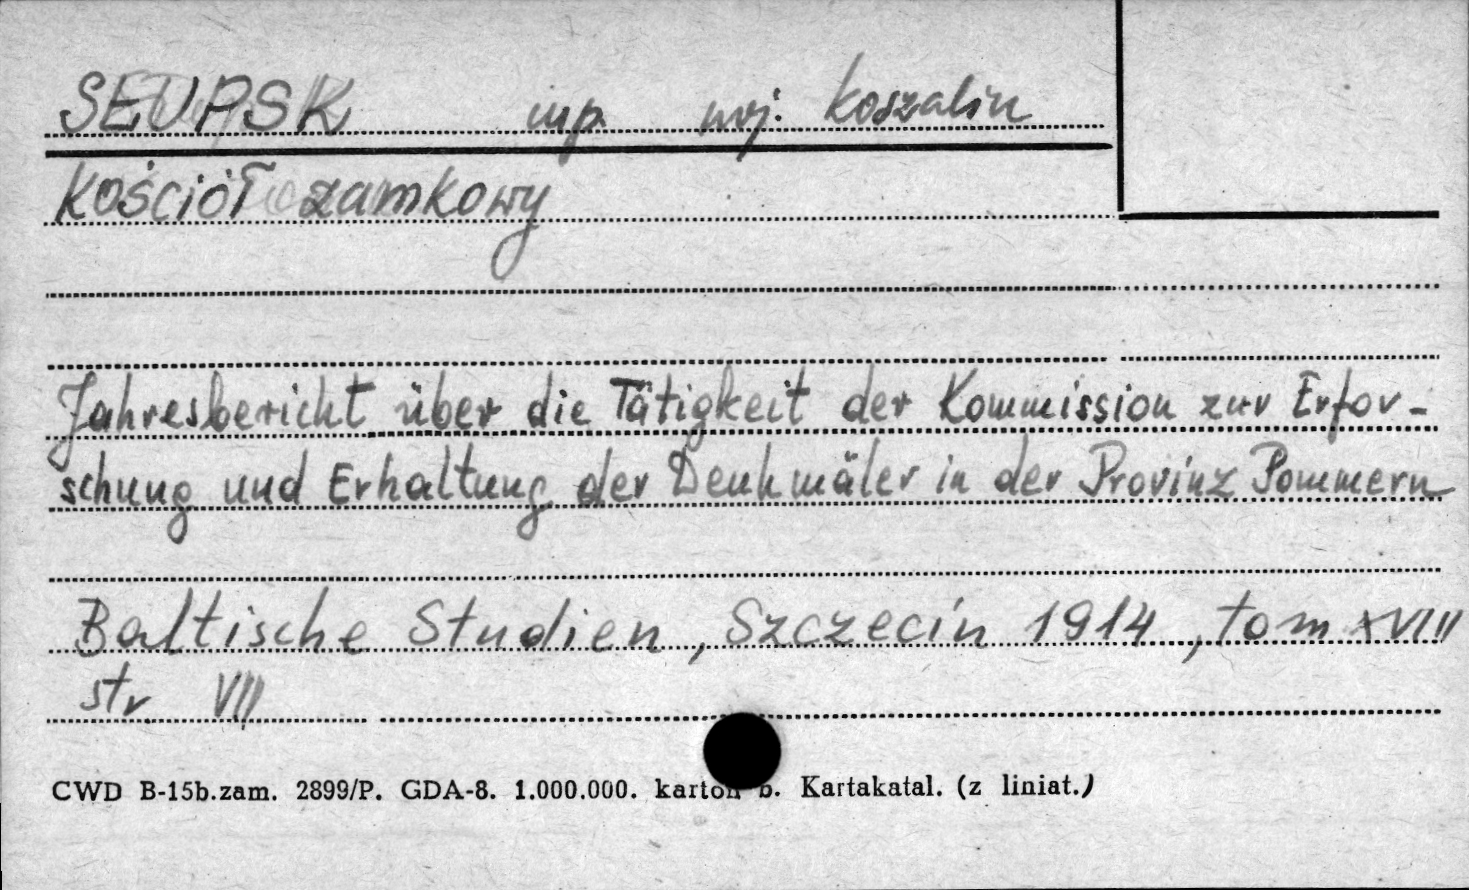 SŁUPSK mp. woj. Koszalin
Kościół zamkowy
Jahresbericht über die Tätigkeit der Kommission zur Erfor-
schung und Erhaltung der Denkmäler in der Provinz Pommern
Baltische Studien, Szczecin 1914, tom XVIII
str VII
CWD B-15b.zam. 2899/P. GDA-8. 1.000.000. karton b. Kartakatal. (z liniat.)